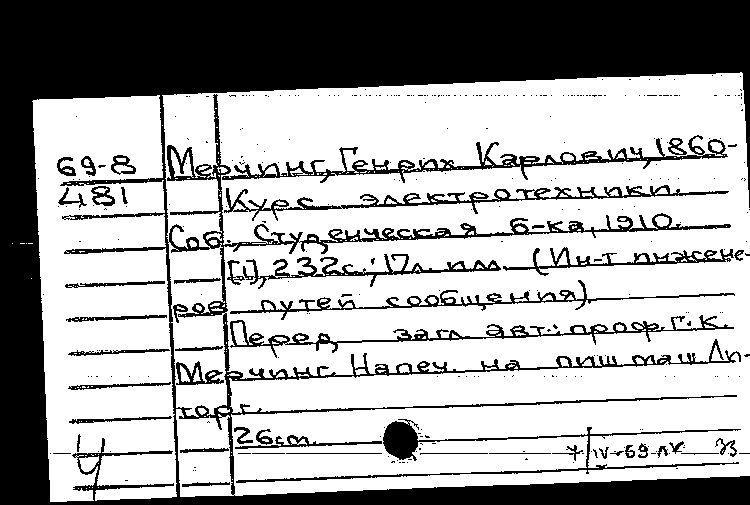 69-8 Мерчинг, Генрих Карлович, 1860-
481 Курс электротехники.
Спб., Студенческая б-ка, 1910.
[1], 232с.; 17л. илл. (Ин-т инжене-
ров путей сообщения).
Перед загл. авт.: проф. Г. К.
Мерчинг. Напеч. на пиш. маш. Ли-
тогр.
26см.
Ч 7/IV-69 лк